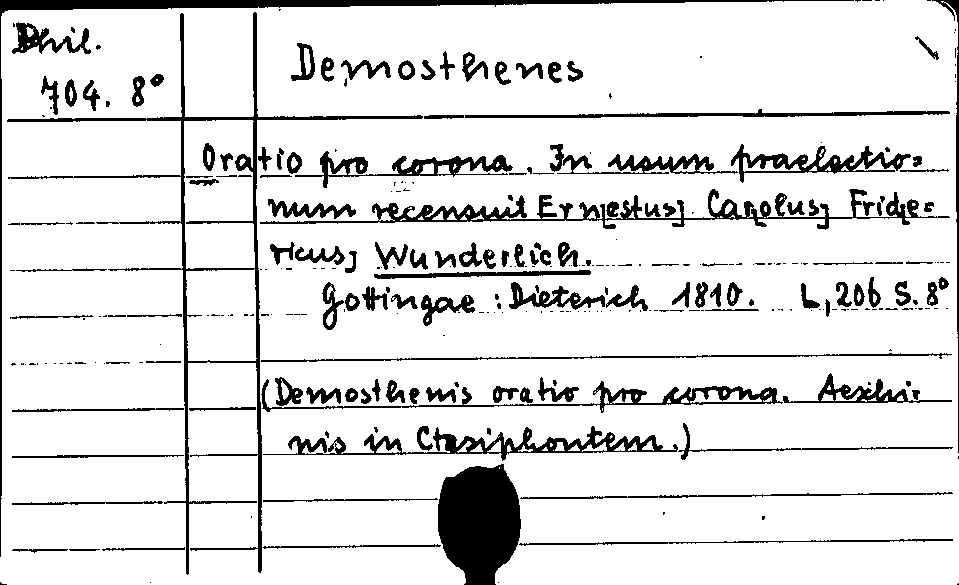 Phil.
704. 8°
Demosthenes
Oratio pro corona. In usum praelectio=
num recensuit Ern[estus] Ca[rolus] Frid[e=
ricus] Wunderlich.
Gottingae : Dieterich 1810. L, 206 S. 8°
(Demosthenis oratio pro corona. Aeschi=
nis in Ctesiphontem.)